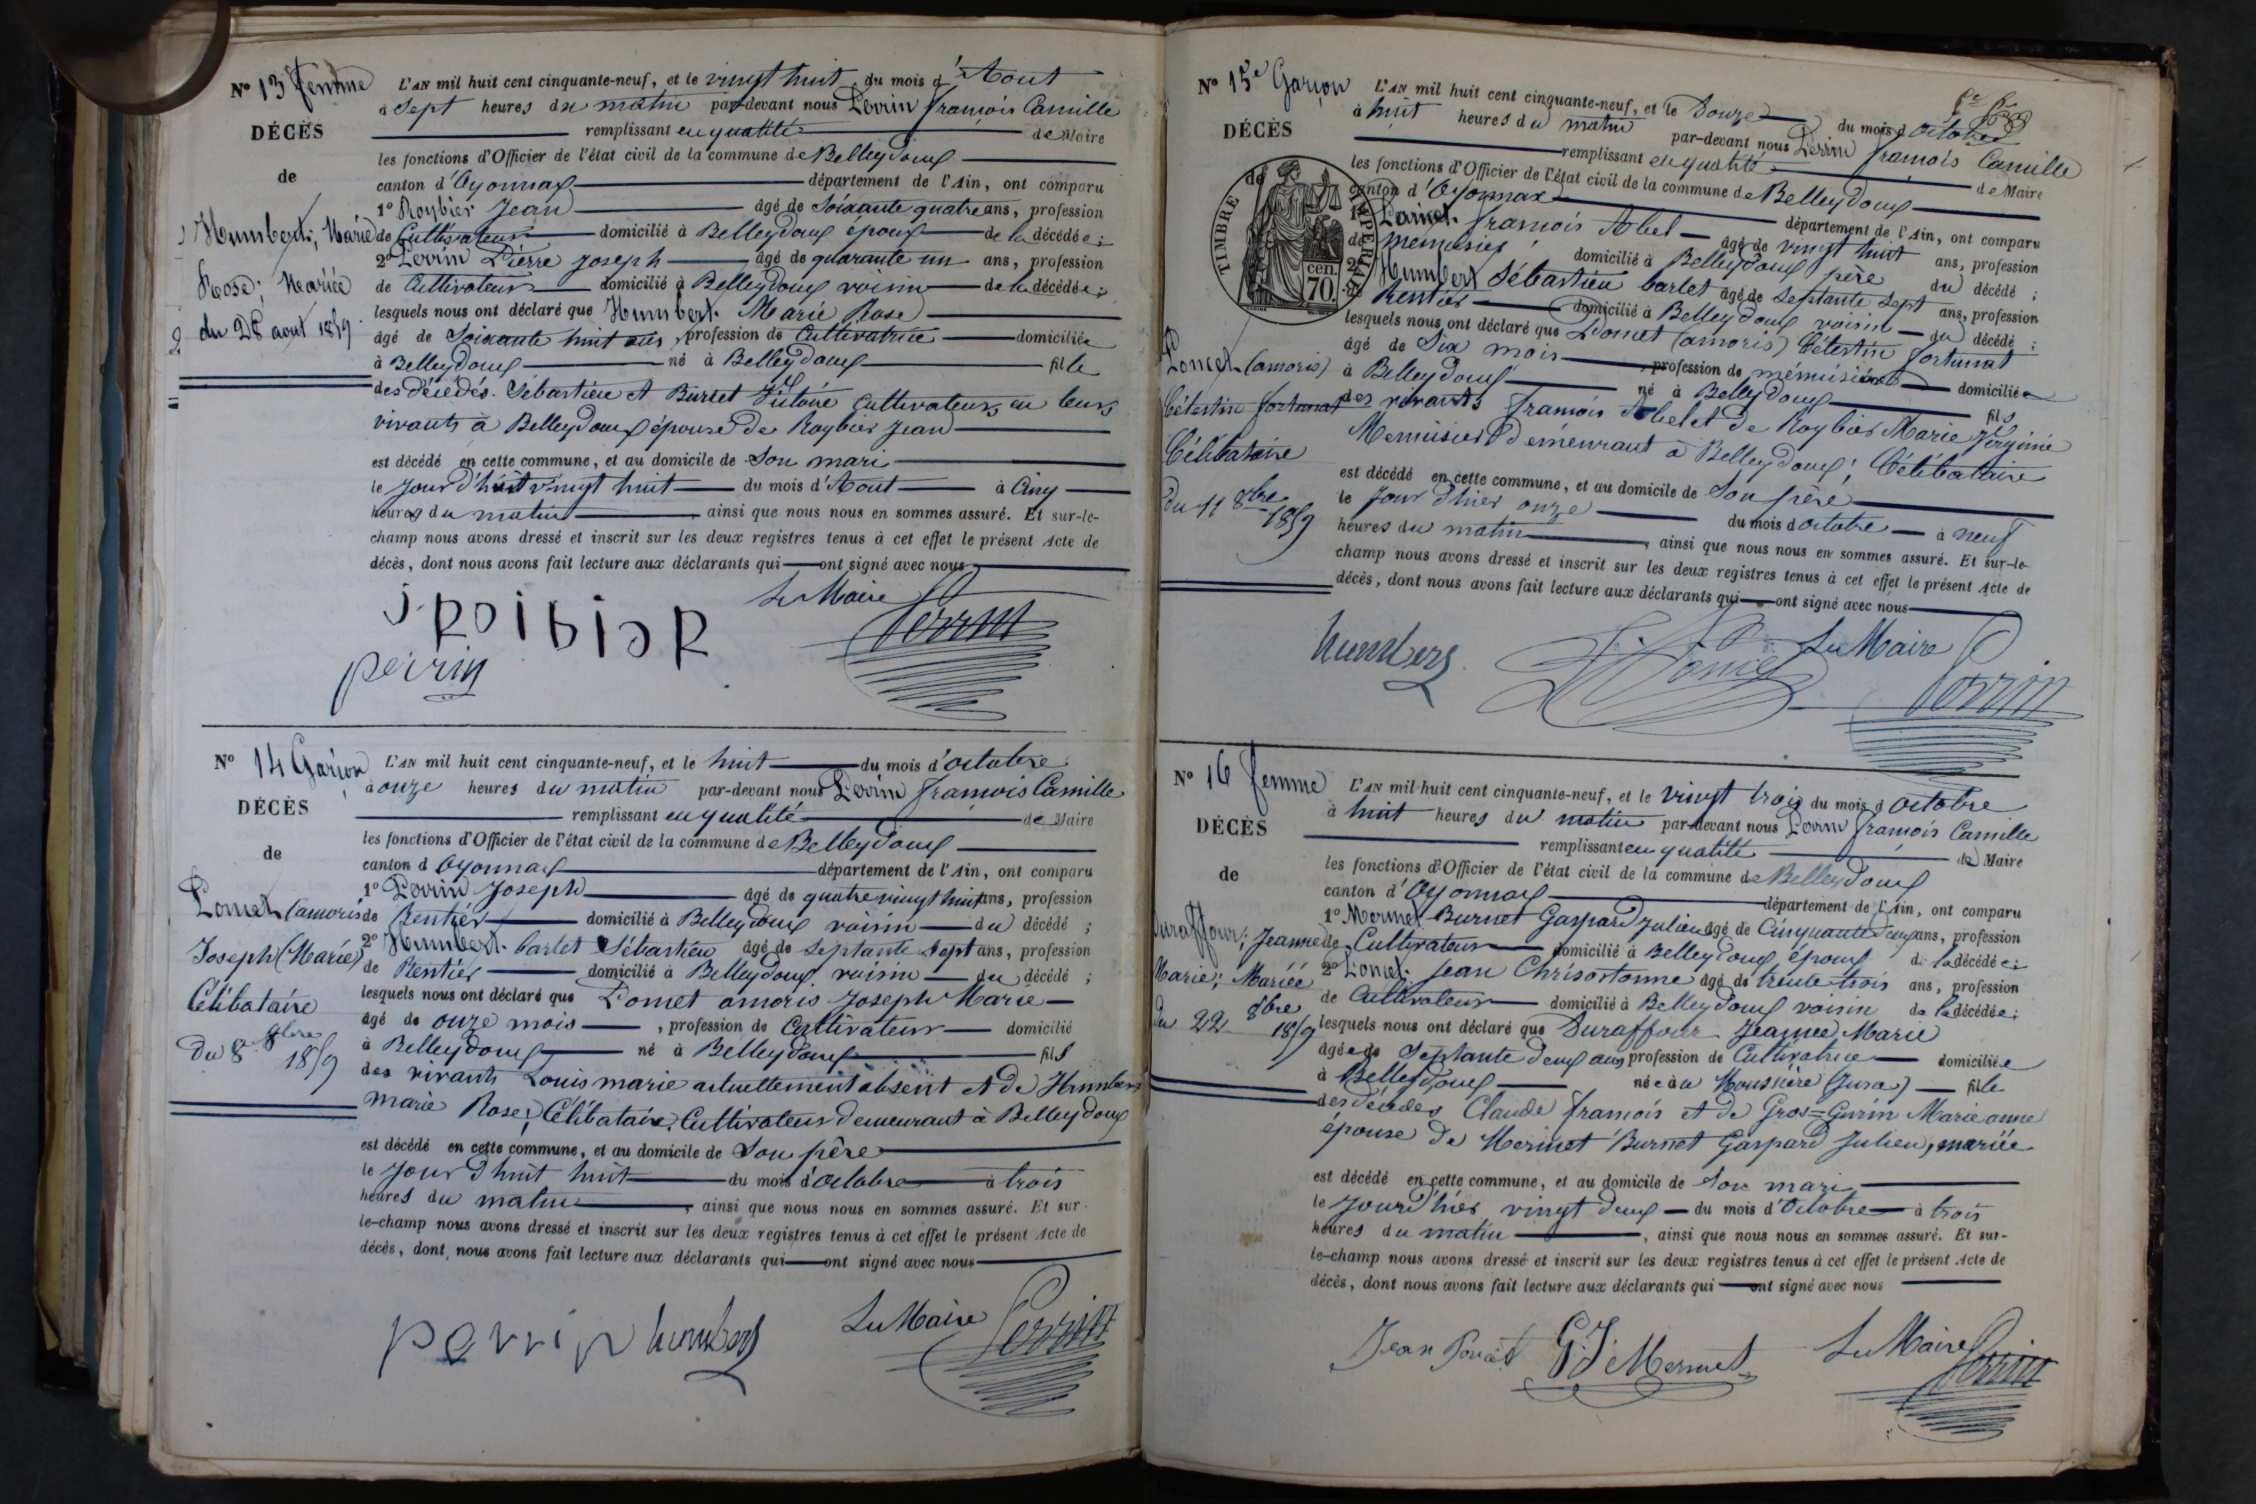 N° 13 femme
DÉCÈS
de
Humbert, Marie
Rose; Mariée
du 28 aout 1859
L'AN mil huit cent cinquante-neuf, et le vingt huit du mois d'Aout
à sept heures du matin par-devant nous Perrin françois Camille
remplissant en qualité de Maire
les fonctions d'Officier de l'état civil de la commune de Belleydoux
canton d'Oyonnax département de l'Ain, ont comparu
1° Roybier Jean âgé de Soixante quatre ans, profession
de Cultivateur domicilié à Belleydoux époux de la décédée;
2° Perrin Pierre Joseph âgé de quarante un ans, profession
de Cultivateur domicilié à Belleydoux voisin de la décédée;
lesquels nous ont déclaré que Humbert Marie Rose
âgé de Soixante huit ans, profession de Cultivatrice domiciliée
à Belleydoux né à Belleydoux fille
des décédés Sébastien et Burnet Victoire Cultivateurs en leurs
vivants à Belleydoux épouse de Roybier Jean
est décédé en cette commune, et au domicile de Son mari
le Jour d'huit vingt huit du mois d'Aout à Cinq
heures du matin, ainsi que nous nous en sommes assuré. Et sur-le-
champ nous avons dressé et inscrit sur les deux registres tenus à cet effet le présent Acte de
décès, dont nous avons fait lecture aux déclarants qui ont signé avec nous
Le Maire
Perrin
perrin
N° 14 Garçon
DÉCÈS
de
Pomet (amoris
Joseph (Marie)
Célibataire
Du 8 8bre 1859
L'AN mil huit cent cinquante-neuf, et le huit du mois d'octobre
à onze heures du matin par-devant nous Perrin françois Camille
remplissant en qualité de Maire
les fonctions d'Officier de l'état civil de la commune de Belleydoux
canton d Oyonnax département de l'Ain, ont comparu
1° Perrin Joseph âgé de quatre vingt huit ans, profession
de Rentier domicilié à Belleydoux voisin du décédé;
2° Humbert barlet Sébastien âgé de Septante Sept ans, profession
de Rentier domicilié à Belleydoux voisin du décédé;
lesquels nous ont déclaré que Pomet amoris Joseph Marie
âgé de onze mois, profession de Cultivateur domicilié
à Belleydoux né à Belleydoux fils
des vivants Louis marie actuellement absent et de Humbert
marie Rose; Célibataire, Cultivateur demeurant à Belleydoux
est décédé en cette commune, et au domicile de Son père
le Jour d'huit huit du mois d'octobre à trois
heures du matin, ainsi que nous nous en sommes assuré. Et sur-
le-champ nous avons dressé et inscrit sur les deux registres tenus à cet effet le présent Acte de
décès, dont nous avons fait lecture aux déclarants qui ont signé avec nous
perrin humbert
Le Maire
Perrin
N° 15e Garçon
DÉCÈS
de
TIMBRE IMPERIAL
cen. 70.
Pomet (amoris)
Célestin fortunat
Célibataire
Du 11 8bre 1859
L'AN mil huit cent cinquante-neuf, et le Douze du mois d octobre
à huit heures du matin par-devant nous Perrin françois Camille
remplissant en qualité de Maire
les fonctions d'Officier de l'état civil de la commune de Belleydoux
canton d'Oyonnax département de l'Ain, ont comparu
1° Pomet françois Abel âgé de vingt huit ans, profession
de menuisier domicilié à Belleydoux père du décédé;
2° Humbert Sébastien barlet âgé de Septante Sept ans, profession
de Rentier domicilié à Belleydoux voisin du décédé:
lesquels nous ont déclaré que Pomet (amoris) Célestin fortunat
âgé de Six mois, profession de menuisier domicilié
à Belleydoux né à Belleydoux fils
des vivants françois Abel et de Roybier Marie Virginie
Menuisier demeurant à Belleydoux; Célibataire
est décédé en cette commune, et au domicile de Son père
le Jour d'hier onze du mois d octobre à neuf
heures du matin, ainsi que nous nous en sommes assuré. Et sur-le-
champ nous avons dressé et inscrit sur les deux registres tenus à cet effet le présent Acte de
décès, dont nous avons fait lecture aux déclarants qui ont signé avec nous
humbert
Le Maire
Perrin
N° 16 femme
DÉCÈS
de
Duraffour; Jeanne
Marie; Mariée
Du 22 8bre 1859
L'AN mil huit cent cinquante-neuf, et le vingt trois du mois d octobre
à huit heures du matin par-devant nous Perrin françois Camille
remplissant en qualité de Maire
les fonctions d'Officier de l'état civil de la commune de Belleydoux
canton d'Oyonnax département de l'Ain, ont comparu
1° Mermet Burnet Gaspard Julien âgé de Cinquante deux ans, profession
de Cultivateur domicilié à Belleydoux époux de la décédée;
2° Pomet Jean Chrisostome âgé de trente trois ans, profession
de Cultivateur domicilié à Belleydoux voisin de la décédée;
lesquels nous ont déclaré que Duraffour Jeanne Marie
âgée de Septante deux ans profession de Cultivatrice domiciliée
à Belleydoux née à la Moussière (Jura) fille
des décédés Claude françois et de Gros=Gurin Marie anne
épouse de Mermet Burnet Gaspard Julien, mariée
est décédé en cette commune, et au domicile de Son mari
le Jour d'hier vingt deux du mois d'Octobre à trois
heures du matin, ainsi que nous nous en sommes assuré. Et sur-
le-champ nous avons dressé et inscrit sur les deux registres tenus à cet effet le présent Acte de
décès, dont nous avons fait lecture aux déclarants qui ont signé avec nous
Jean G J Mermet
Le Maire
Perrin